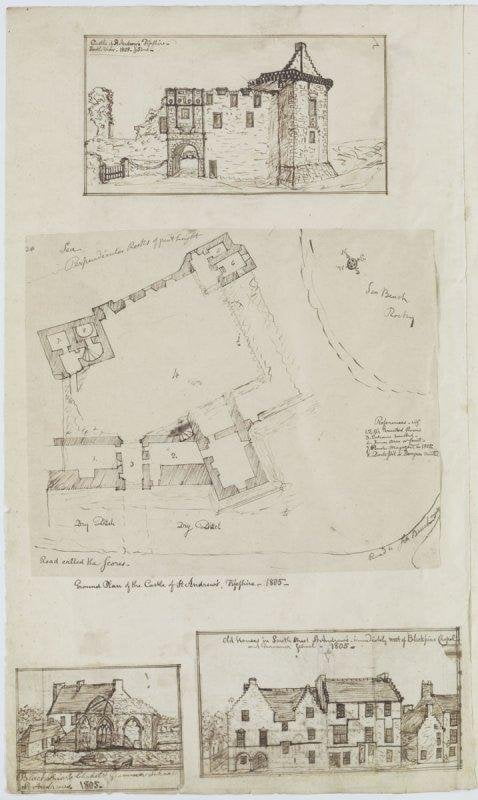 Castle of St Andrew's Fifeshire -
South View - 1805
Sea
Perpendicular Rocks of great height
N
Sea Beach
Rocky
1.
2.
3
References
Dry Ditch
Dry Ditch
Road to the Beach
Road called the Scores -
Ground Plan of the Castle of St Andrew's, Fifeshire - 1805 -
Old Houses in South Street St Andrew's, immediately west of Blackfriars Chapel
and Grammar School - 1805 -
Blackfriars Chapel & Grammar School
St Andrews 1805 -